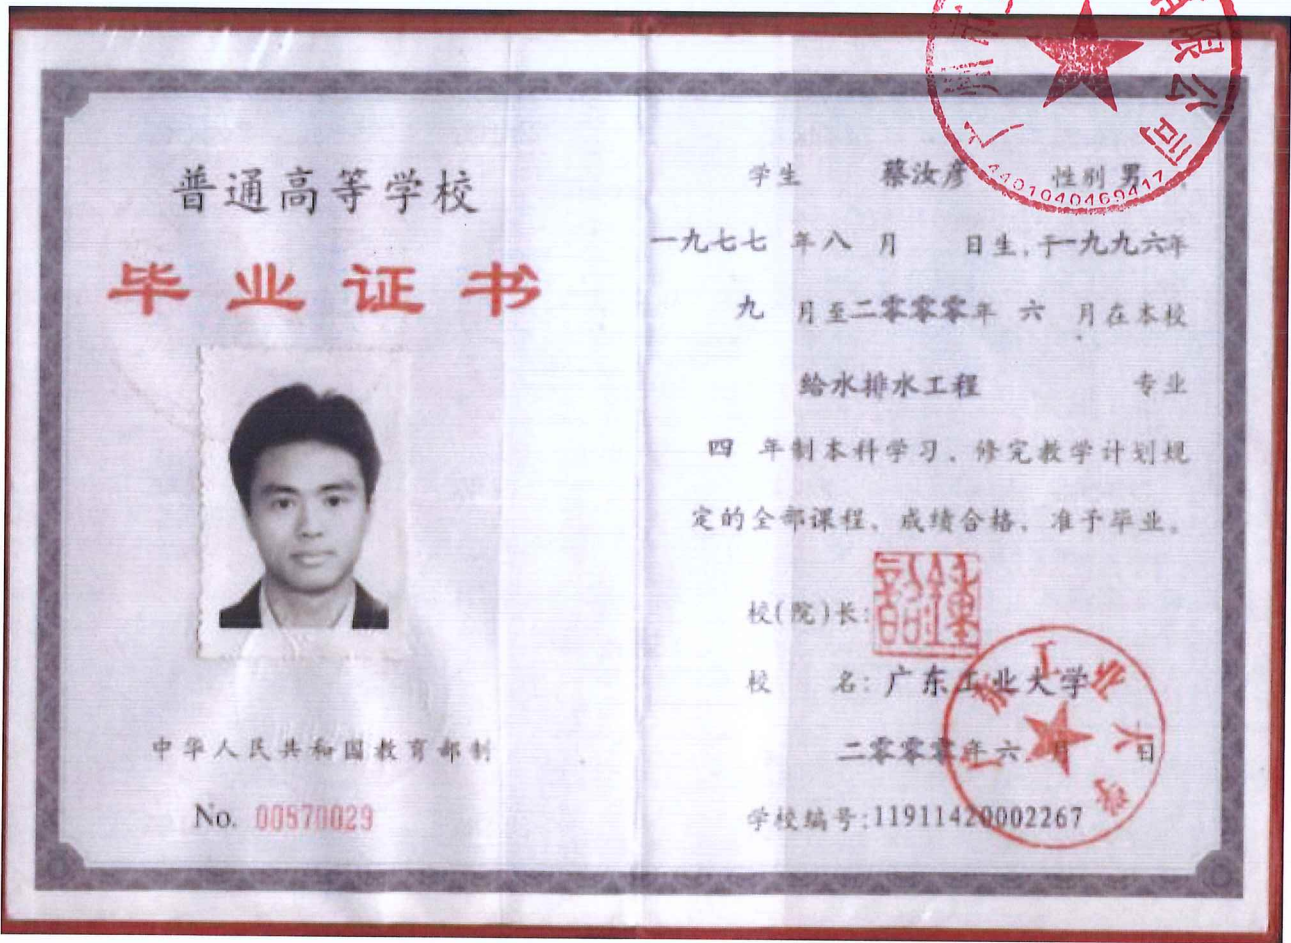 普通高等学校
毕业证书
中华人民共和国教育部制
No. 00870029
学生 蔡汝彦 性别 男
一九七七 年 八 月 日生,于一九九六年
九 月至二零零零年 六 月在本校
给水排水工程 专业
四 年制本科学习、修完教学计划规
定的全部课程、成绩合格、准予毕业。
校(院)长:
校 名: 广东工业大学
二零零零年 六 月 日
学校编号:11911420002267
广东工业大学
广州市
有限公司
4401040469417